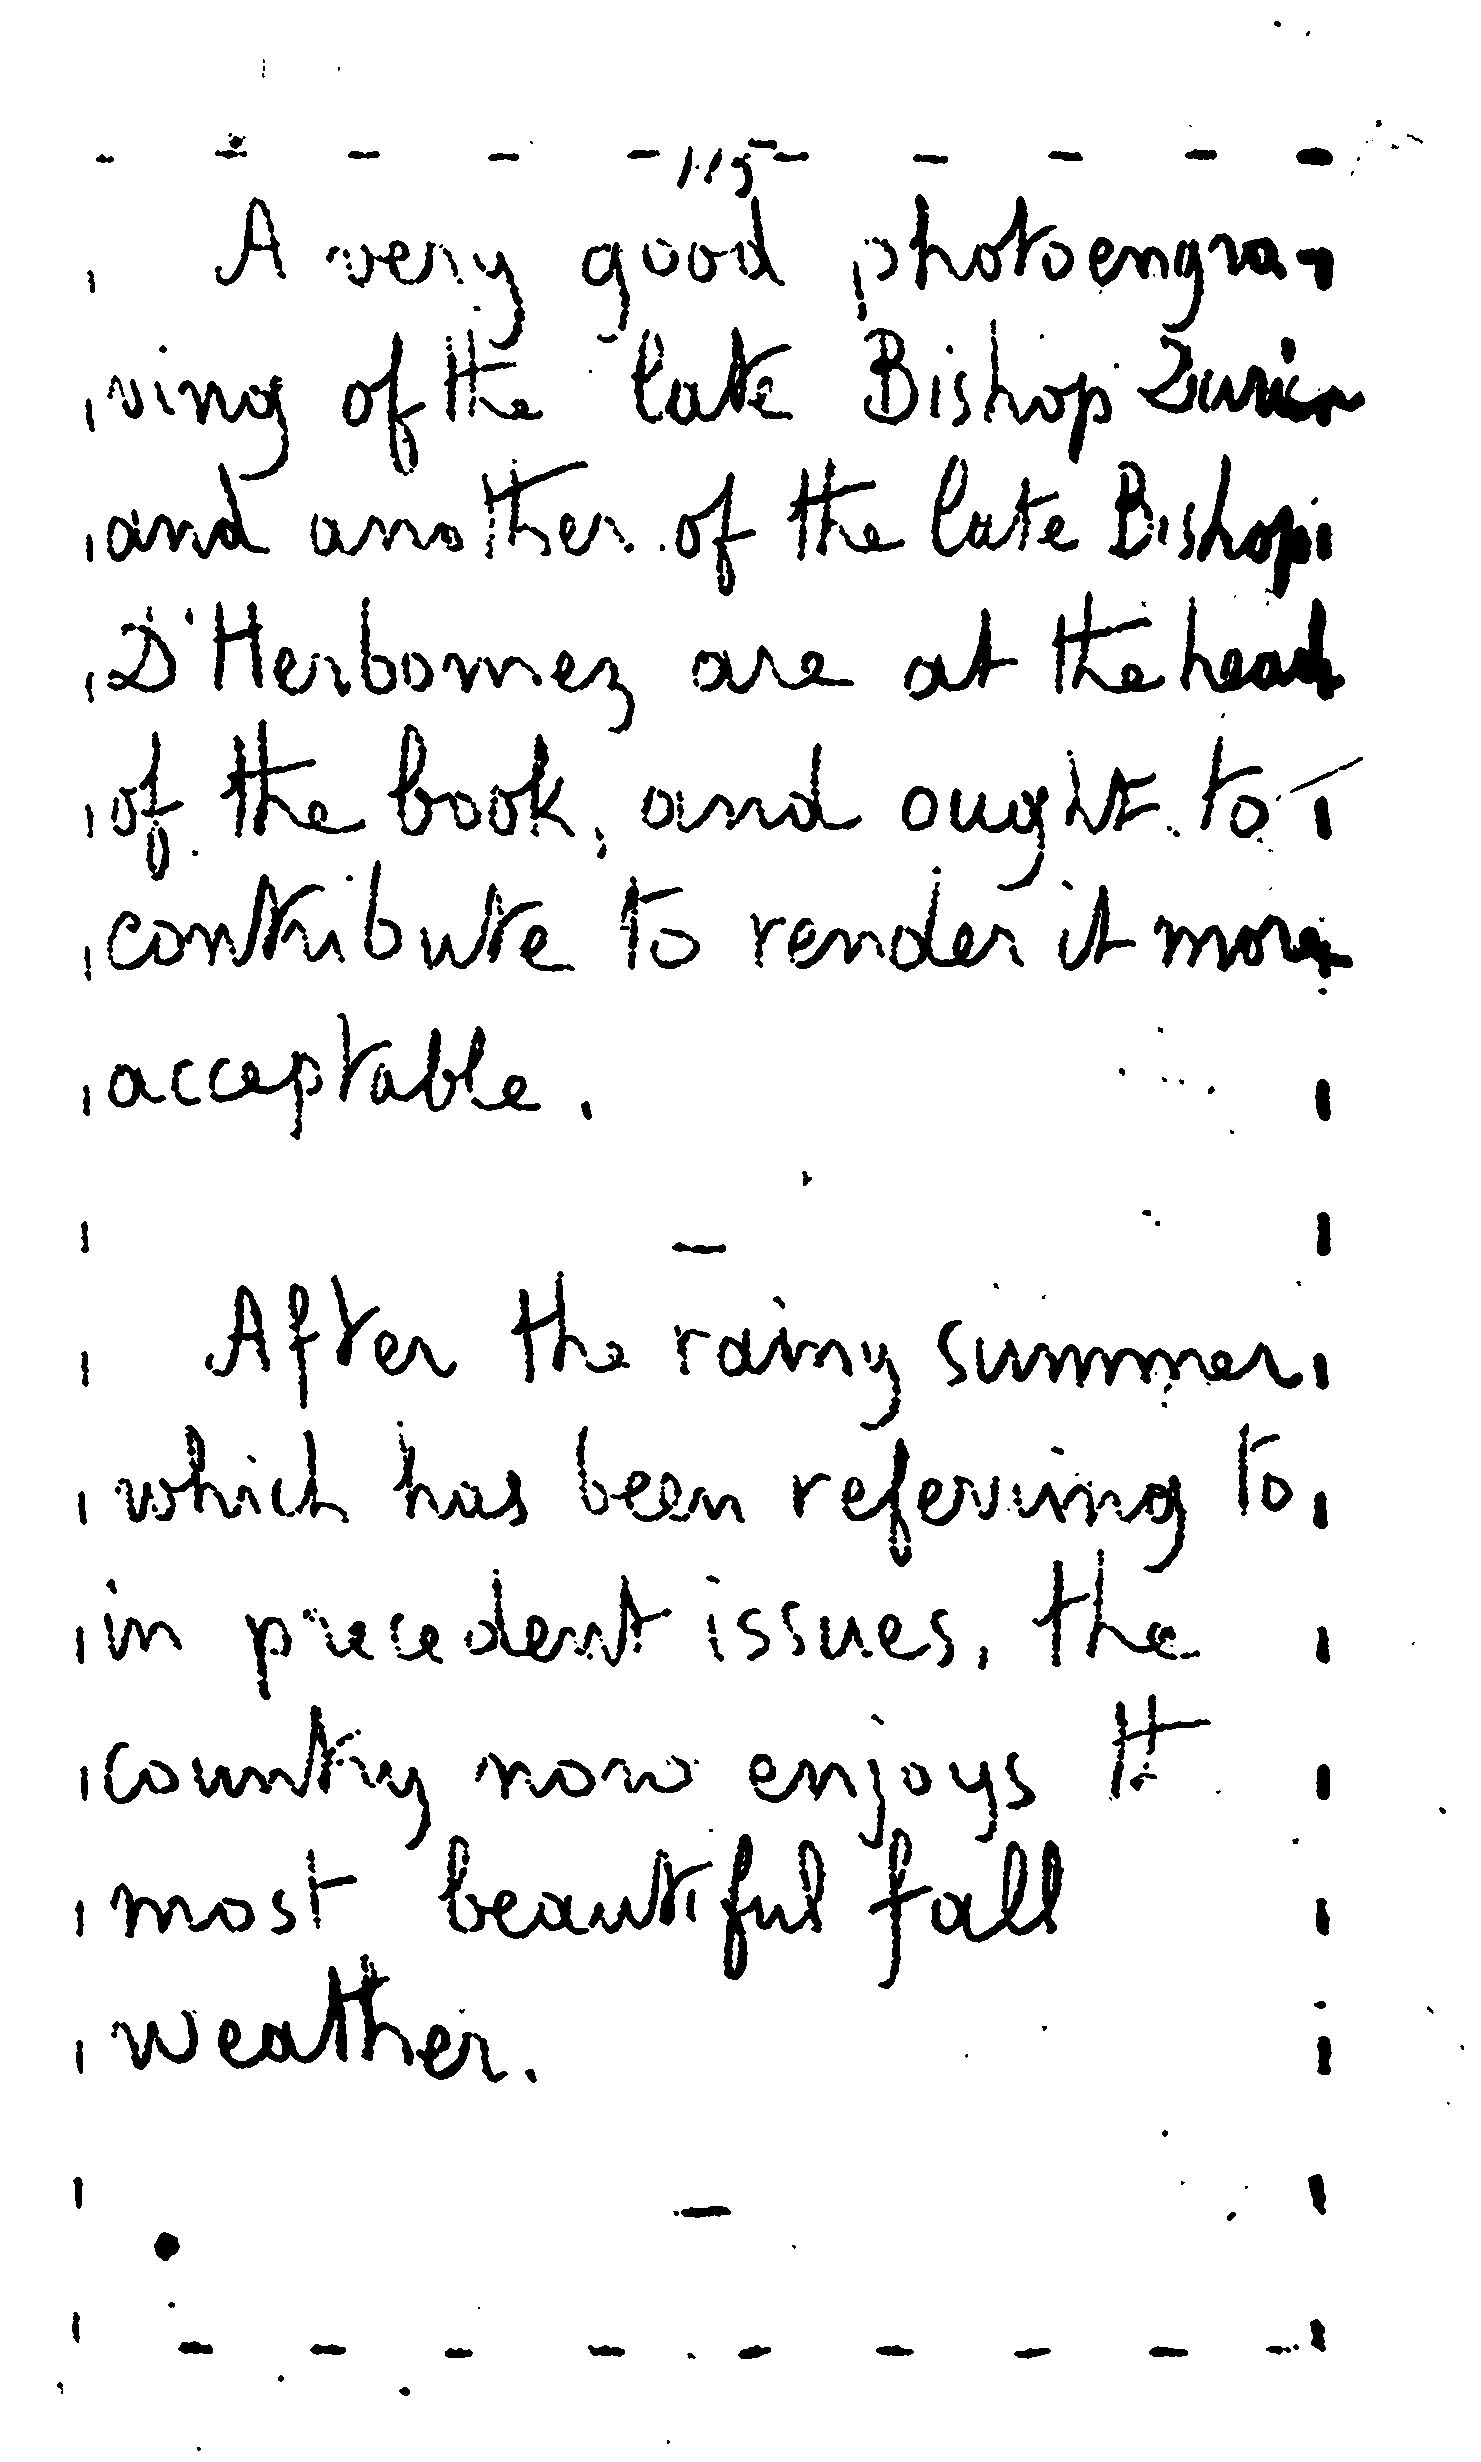 115
A very good photoengra-
ving of the late Bishop Durieu
and another of the late Bishop
D'Herbomez are at the head
of the book, and ought to
contribute to render it more
acceptable.
—
After the rainy summer
which has been referring to
in precedent issues, the
country now enjoys
most beautiful fall
weather.
—